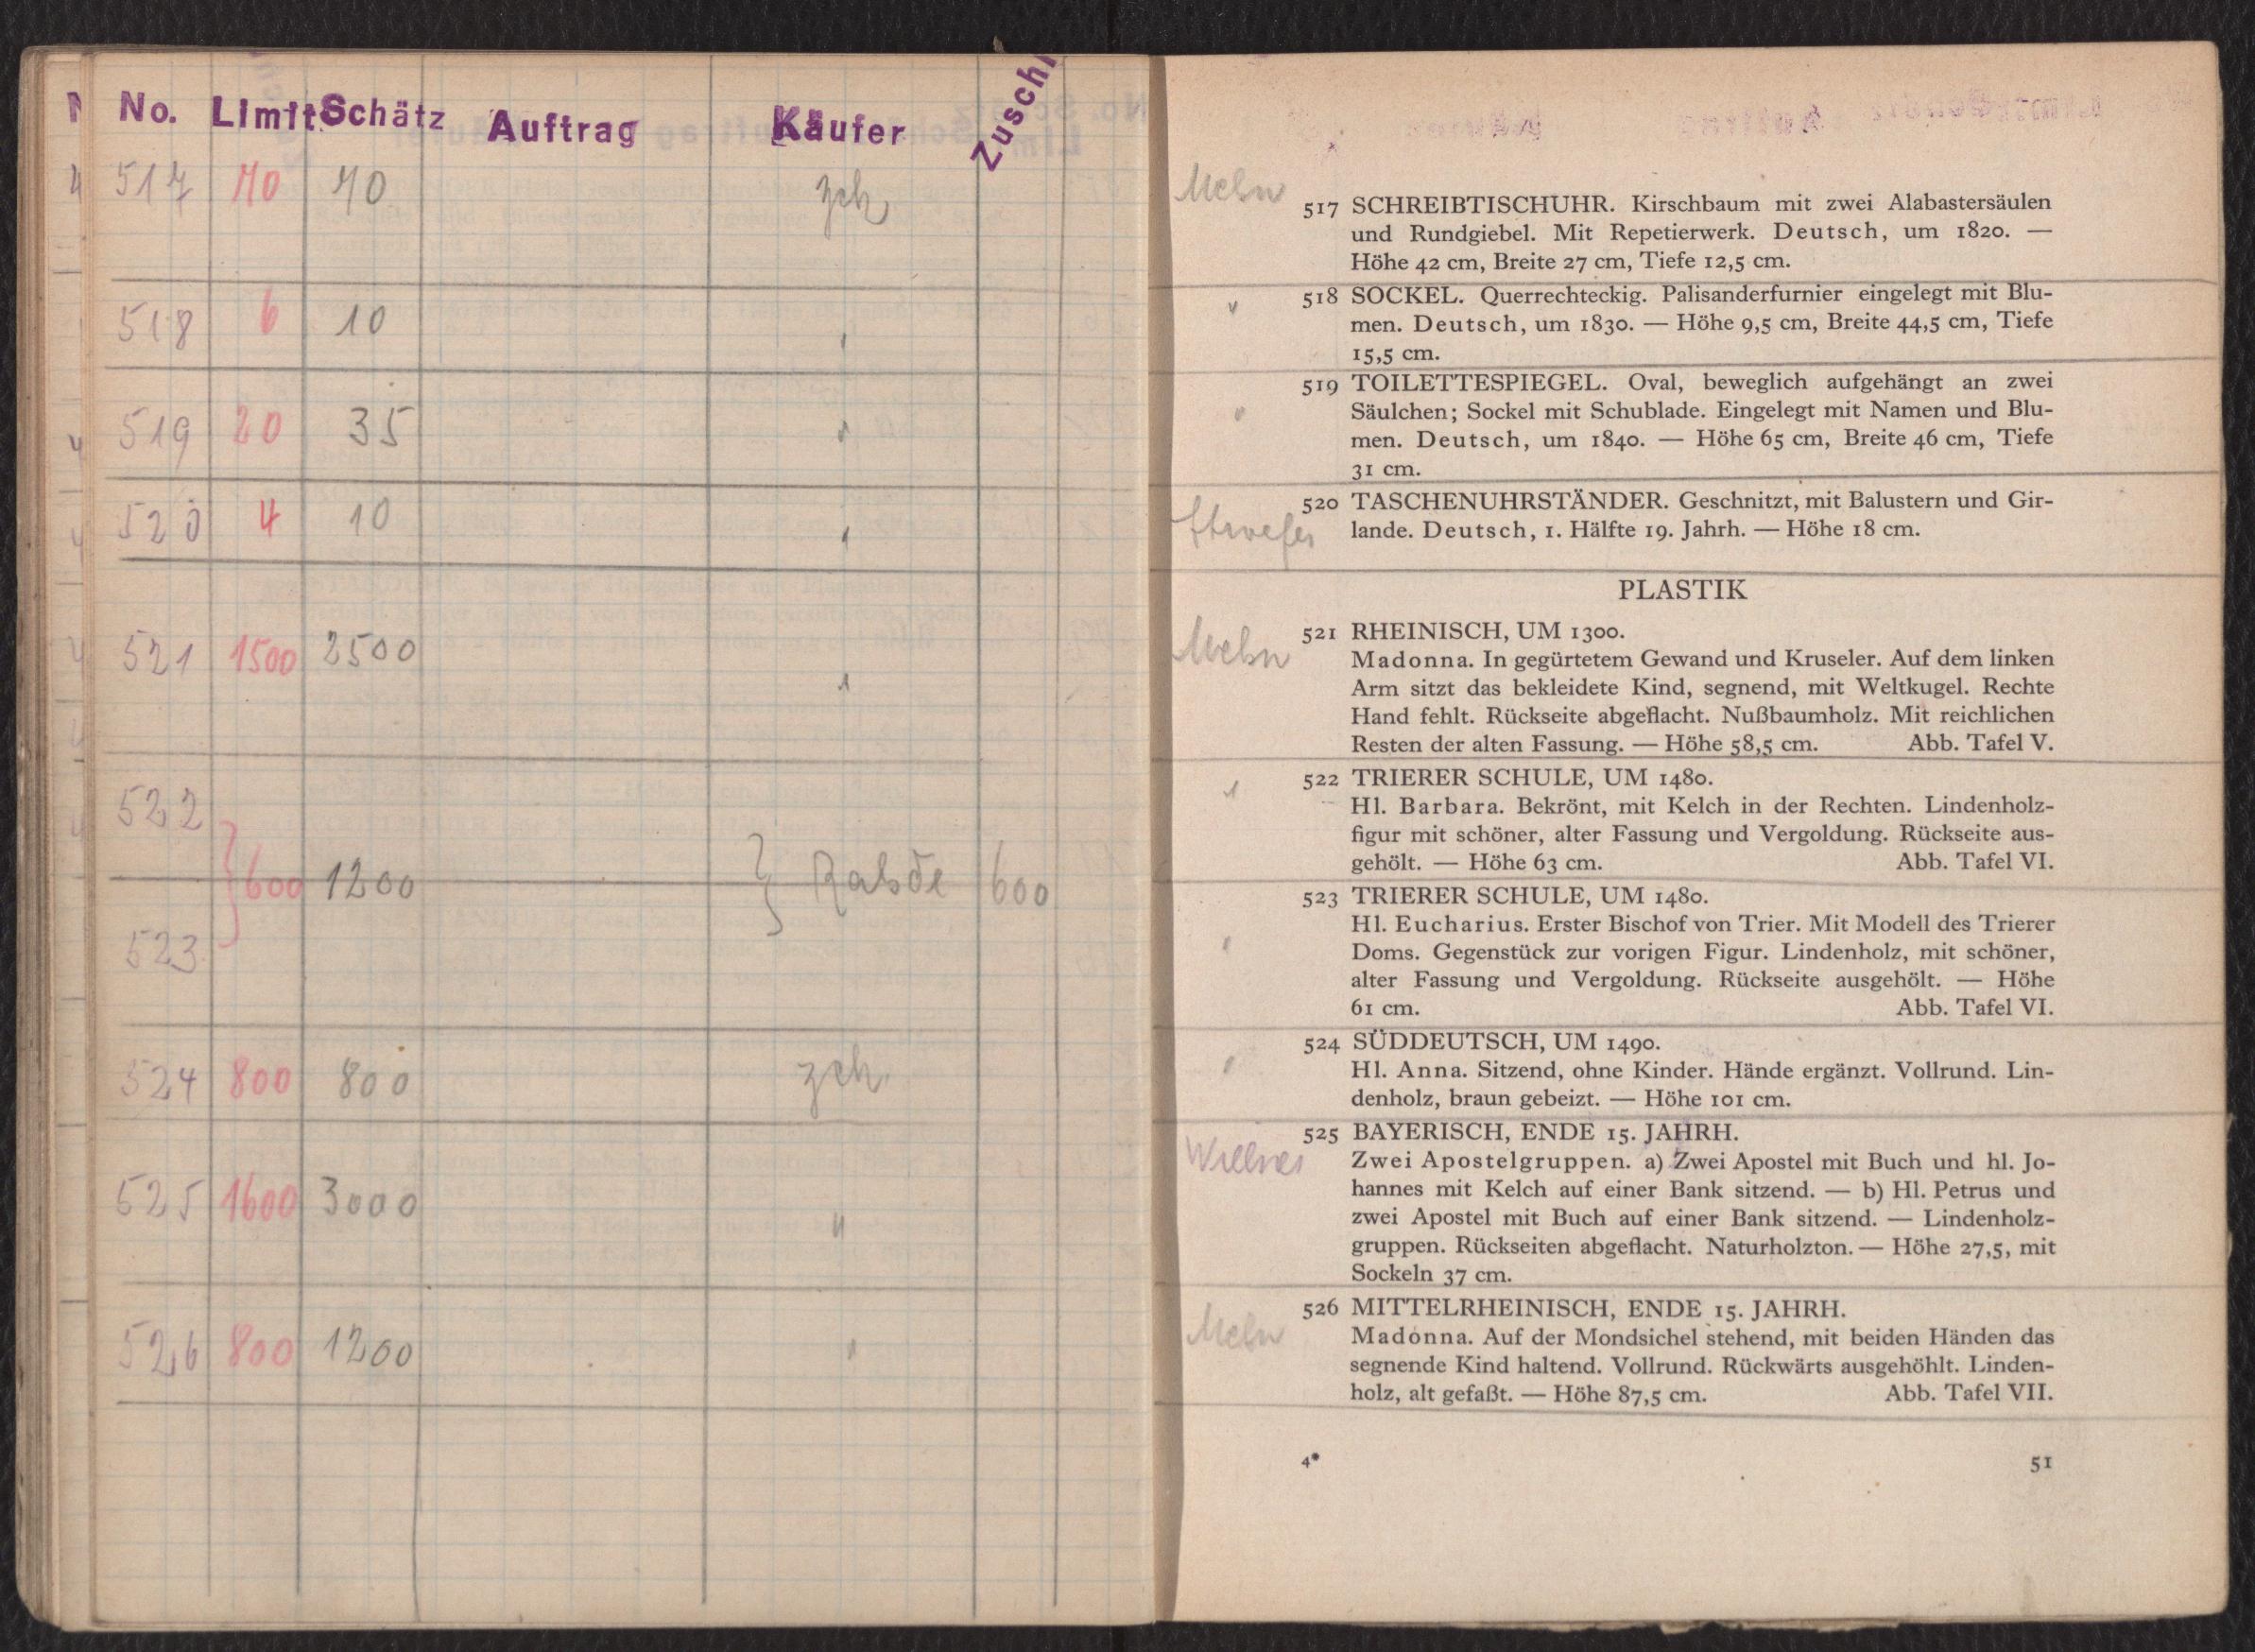 No. Limit Schätz Auftrag Käufer Zuschl
517 70 70 zch
518 6 10 "
519 20 35 "
520 4 10 "
521 1500 2500 "
522
600 1200 600
523
524 800 800 zch
525 1600 3000 "
526 800 1200 "
517 SCHREIBTISCHUHR. Kirschbaum mit zwei Alabastersäulen
und Rundgiebel. Mit Repetierwerk. Deutsch, um 1820. —
Höhe 42 cm, Breite 27 cm, Tiefe 12,5 cm.
" 518 SOCKEL. Querrechteckig. Palisanderfurnier eingelegt mit Blu-
men. Deutsch, um 1830. — Höhe 9,5 cm, Breite 44,5 cm, Tiefe
15,5 cm.
" 519 TOILETTESPIEGEL. Oval, beweglich aufgehängt an zwei
Säulchen; Sockel mit Schublade. Eingelegt mit Namen und Blu-
men. Deutsch, um 1840. — Höhe 65 cm, Breite 46 cm, Tiefe
31 cm.
520 TASCHENUHRSTÄNDER. Geschnitzt, mit Balustern und Gir-
lande. Deutsch, 1. Hälfte 19. Jahrh. — Höhe 18 cm.
PLASTIK
521 RHEINISCH, UM 1300.
Madonna. In gegürtetem Gewand und Kruseler. Auf dem linken
Arm sitzt das bekleidete Kind, segnend, mit Weltkugel. Rechte
Hand fehlt. Rückseite abgeflacht. Nußbaumholz. Mit reichlichen
Resten der alten Fassung. — Höhe 58,5 cm. Abb. Tafel V.
" 522 TRIERER SCHULE, UM 1480.
Hl. Barbara. Bekrönt, mit Kelch in der Rechten. Lindenholz-
figur mit schöner, alter Fassung und Vergoldung. Rückseite aus-
gehölt. — Höhe 63 cm. Abb. Tafel VI.
" 523 TRIERER SCHULE, UM 1480.
Hl. Eucharius. Erster Bischof von Trier. Mit Modell des Trierer
Doms. Gegenstück zur vorigen Figur. Lindenholz, mit schöner,
alter Fassung und Vergoldung. Rückseite ausgehölt. — Höhe
61 cm. Abb. Tafel VI.
" 524 SÜDDEUTSCH, UM 1490.
Hl. Anna. Sitzend, ohne Kinder. Hände ergänzt. Vollrund. Lin-
denholz, braun gebeizt. — Höhe 101 cm.
525 BAYERISCH, ENDE 15. JAHRH.
Zwei Apostelgruppen. a) Zwei Apostel mit Buch und hl. Jo-
hannes mit Kelch auf einer Bank sitzend. — b) Hl. Petrus und
zwei Apostel mit Buch auf einer Bank sitzend. — Lindenholz-
gruppen. Rückseiten abgeflacht. Naturholzton. — Höhe 27,5, mit
Sockeln 37 cm.
526 MITTELRHEINISCH, ENDE 15. JAHRH.
Madonna. Auf der Mondsichel stehend, mit beiden Händen das
segnende Kind haltend. Vollrund. Rückwärts ausgehöhlt. Linden-
holz, alt gefaßt. — Höhe 87,5 cm. Abb. Tafel VII.
4* 51